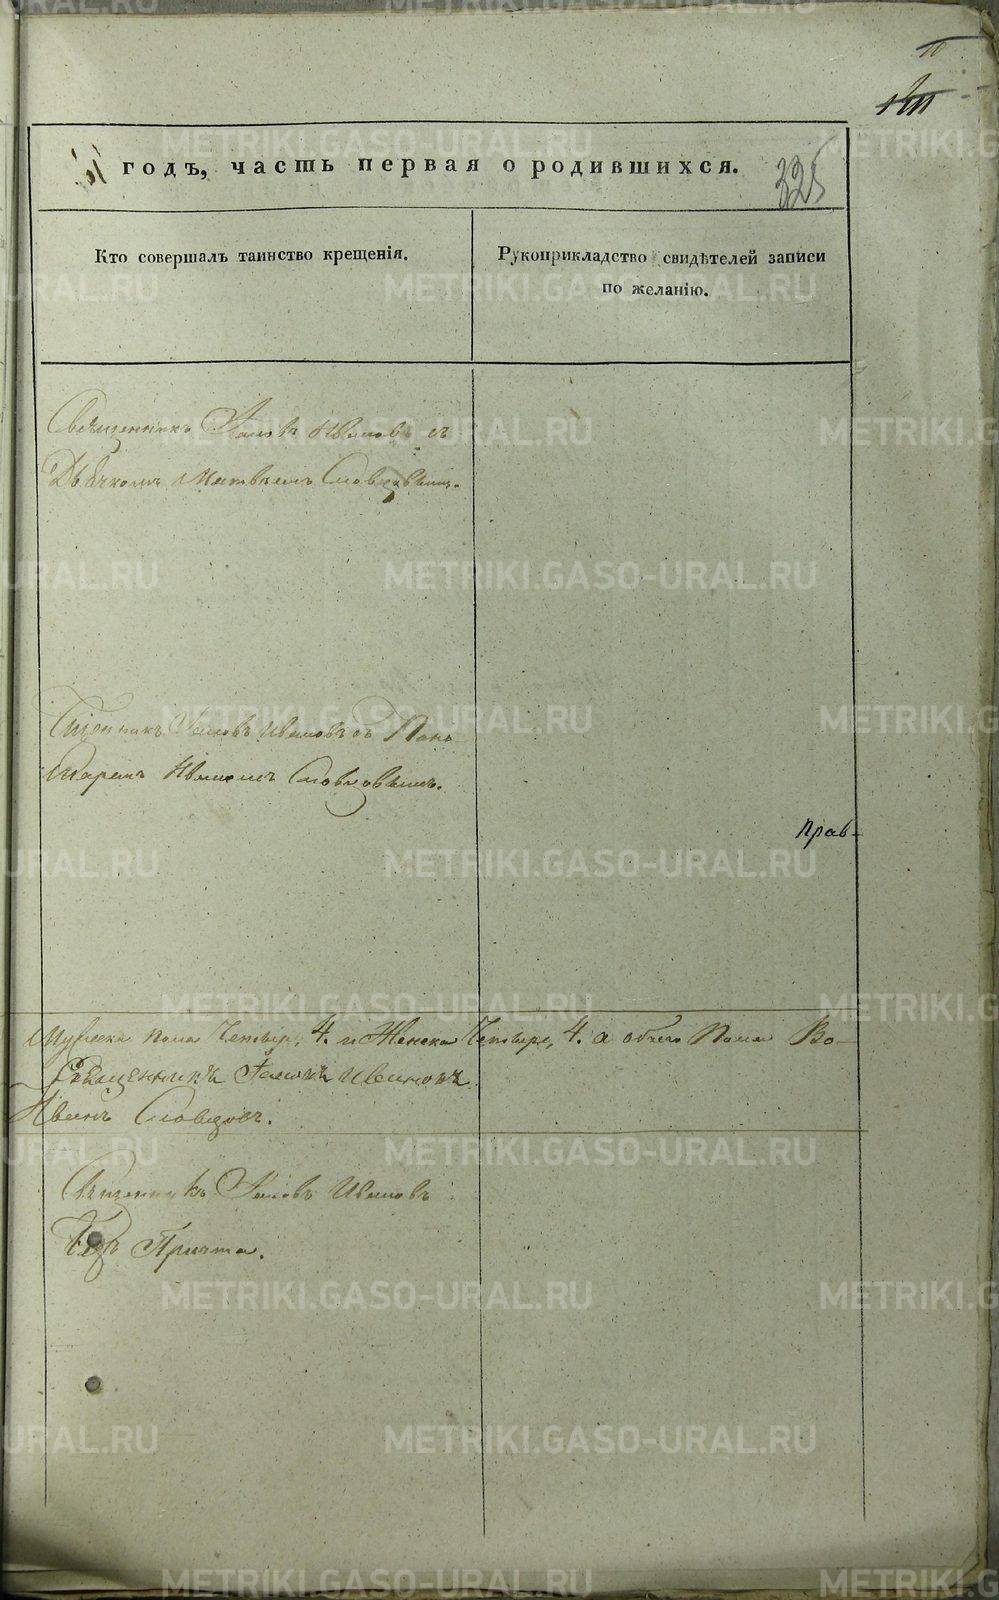 10
61 годъ, часть первая о родившихся.
325
Кто совершалъ таинство крещенія.
Рукоприкладство свидѣтелей записи
по желанію.
Священникъ Іаковъ Ивановъ съ
Дьячкомъ Матвѣемъ Словцовымъ.
Іаковъ Ивановъ съ Поно
маремъ Иваномъ Словцовымъ.
Прав-
Мужеска пола Четыре, 4. и Женска Четыре, 4. а обчего Пола Во-
Священникъ Іаковъ Ивановъ
Иванъ Словцовъ.
Священникъ Іаковъ Ивановъ
Безъ Причта.
METRIKI.GASO-URAL.RU